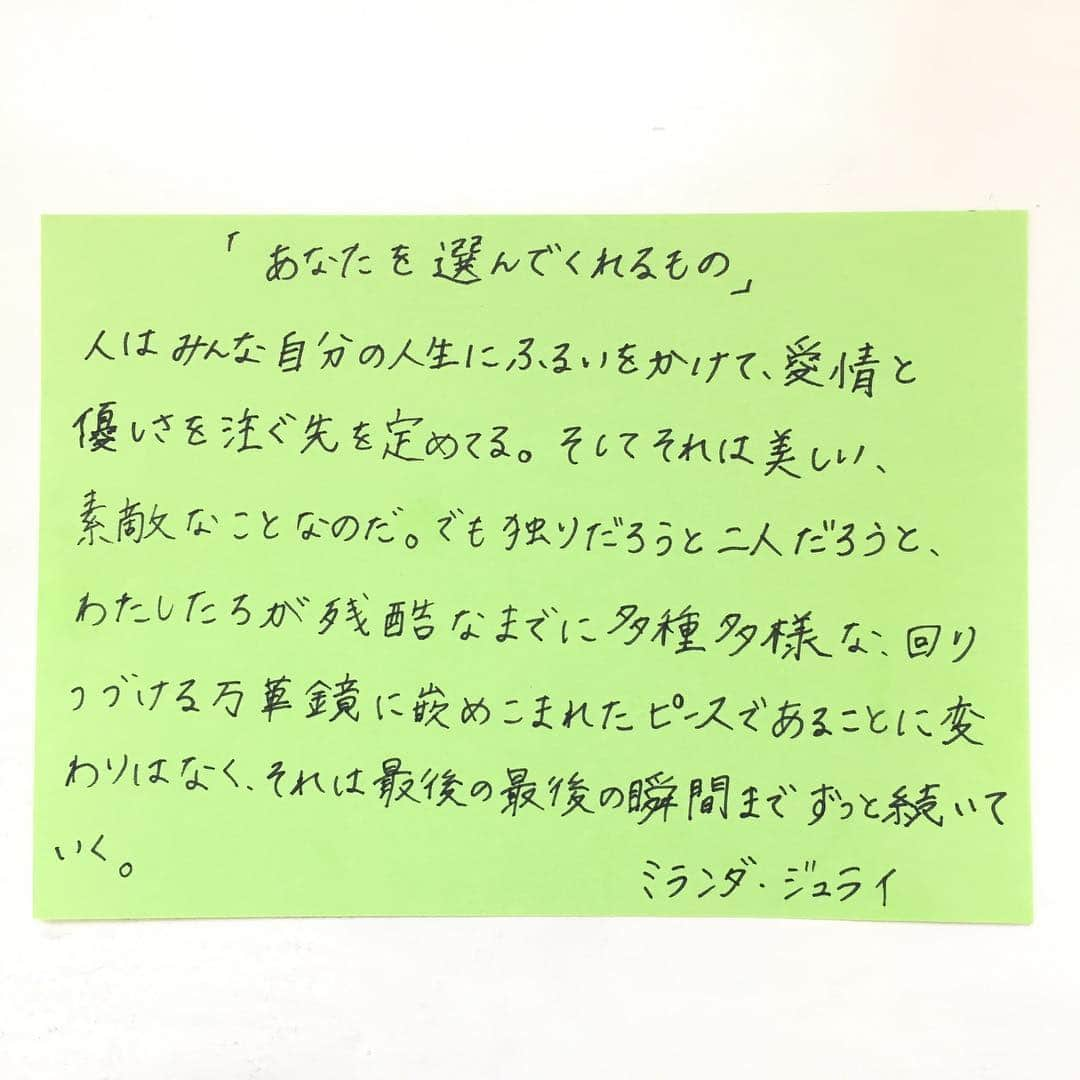 「あなたを選んでくれるもの」
人はみんな自分の人生にふるいをかけて、愛情と
優しさを注ぐ先を定めてる。そしてそれは美しい、
素敵なことなのだ。でも独りだろうと二人だろうと、
わたしたちが残酷なまでに多種多様な、回り
つづける万華鏡に嵌めこまれたピースであることに変
わりはなく、それは最後の最後の瞬間までずっと続いて
いく。
ミランダ・ジュライ